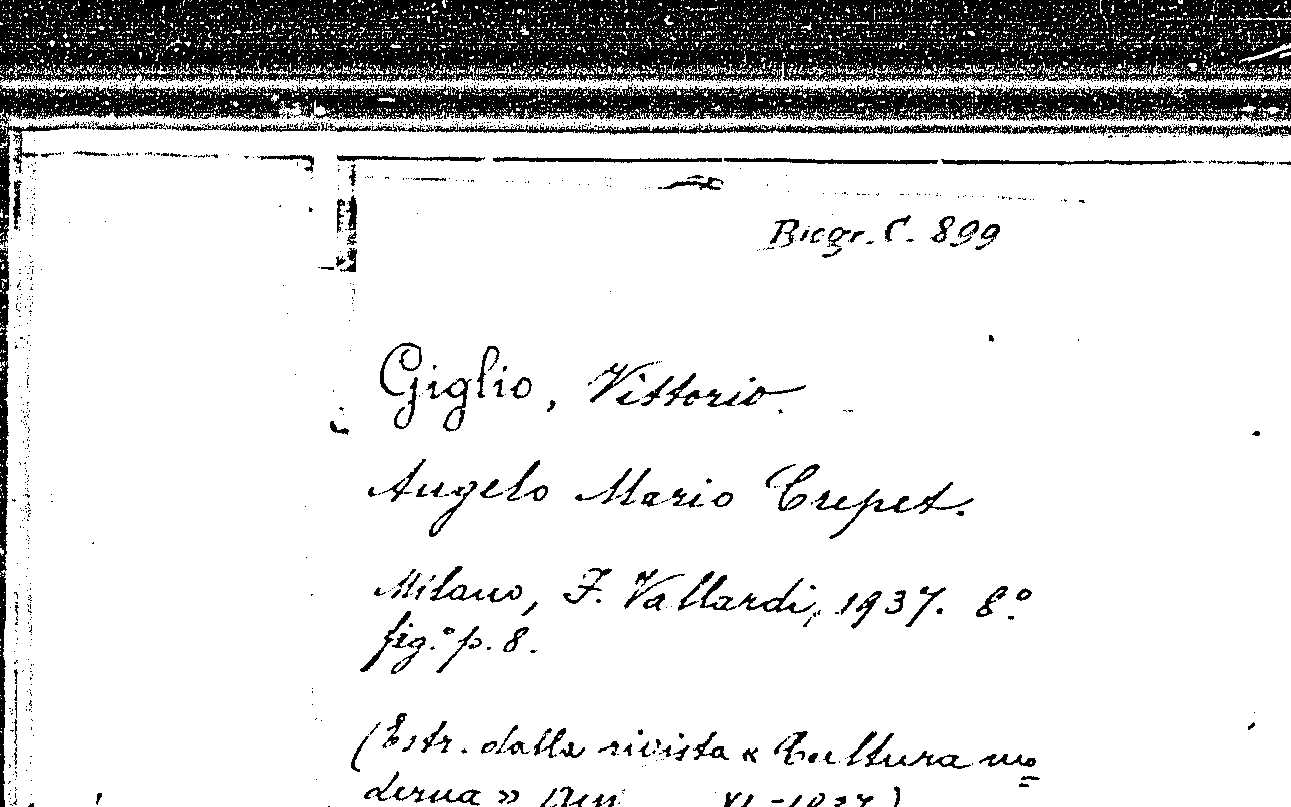 Biogr. C. 899
Giglio, Vittorio.
Angelo Mario Crepet.
Milano, F. Vallardi, 1937. 8°
fig.° p. 8.
(Estr. dalla rivista « Cultura mo=
derna »